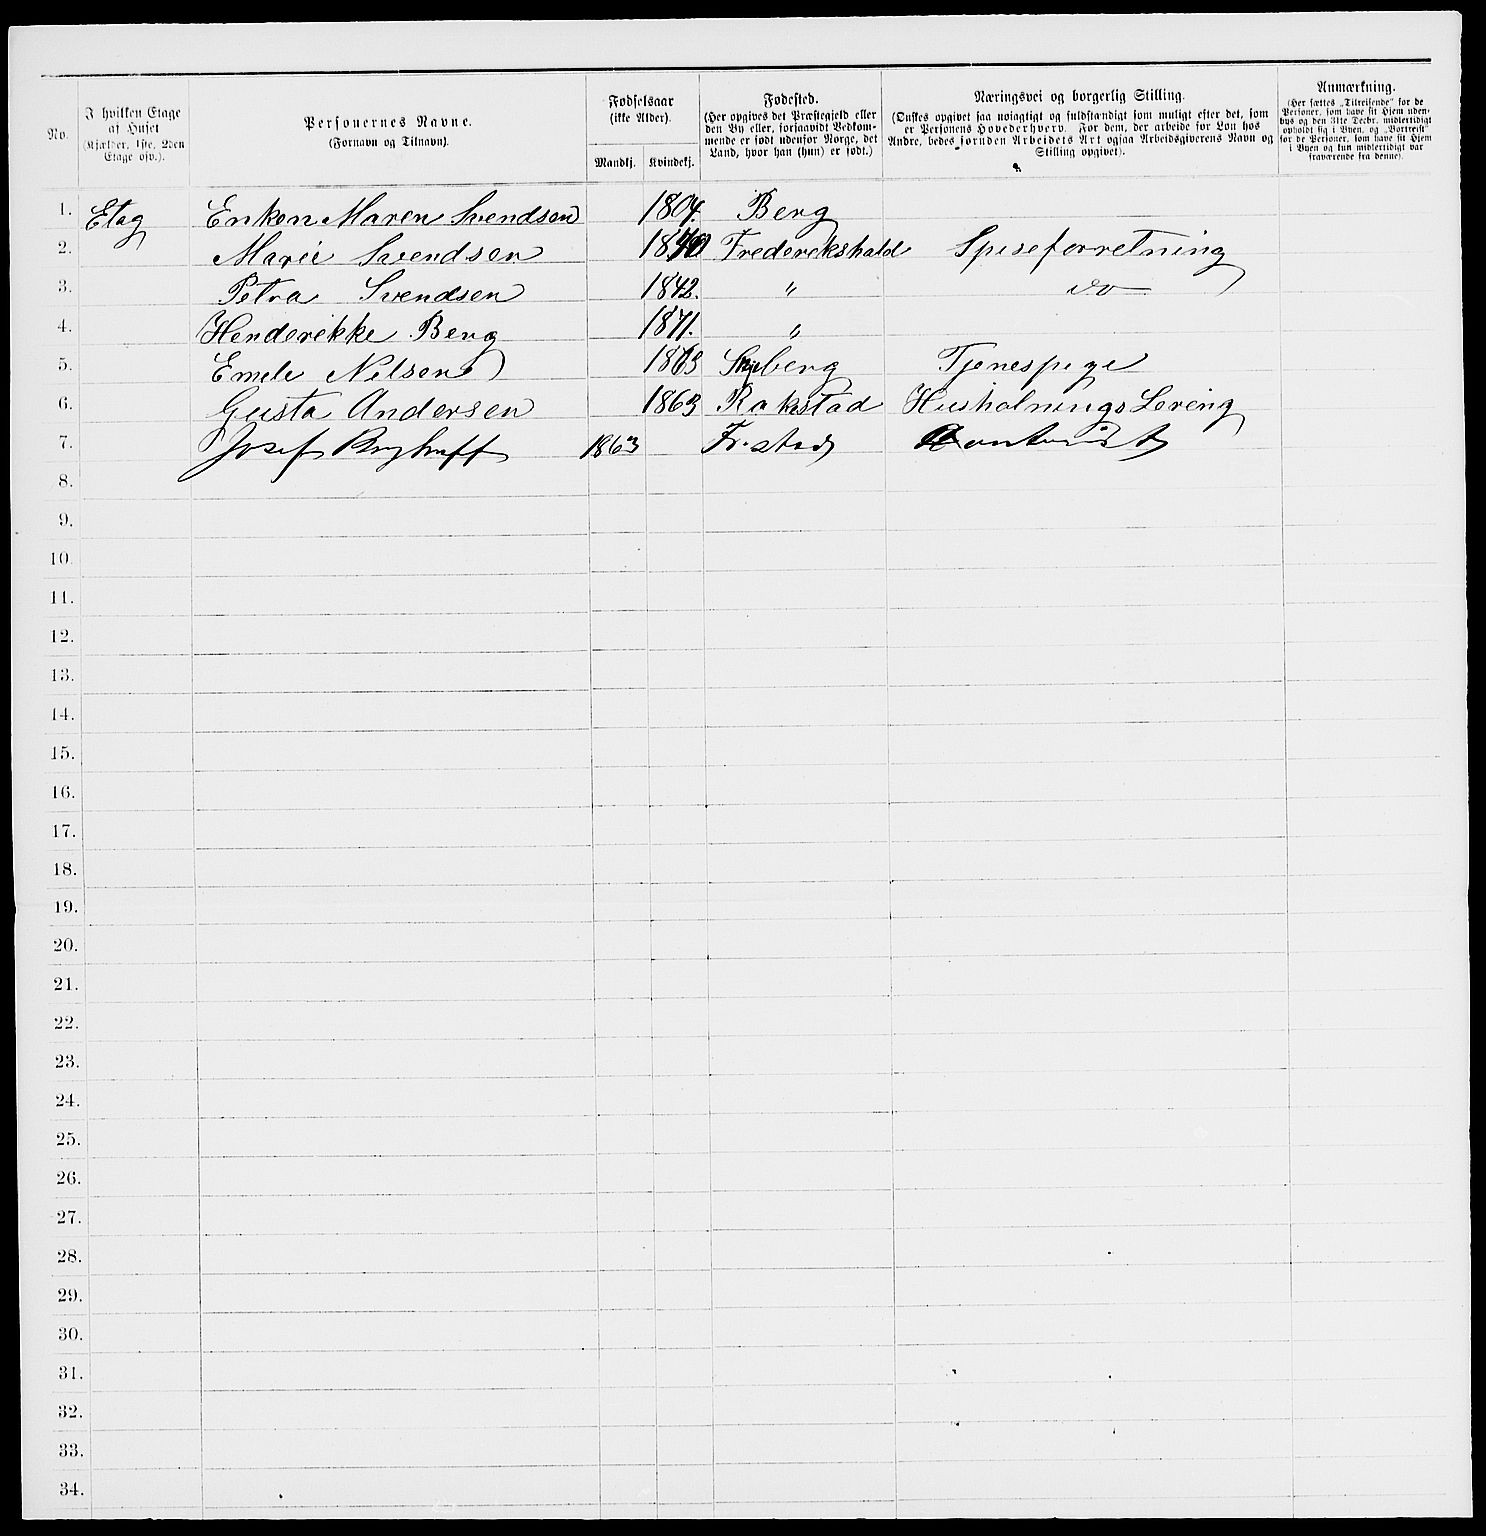 No.
I hvilken Etage
af Huset
(Kjælder, 1ste, 2den
Etage osv.).
Personernes Navne.
(Fornavn og Tilnavn).
Fødselsaar
(ikke Alder).
Mandkj.
Kvindekj.
Fødested.
(Her opgives det Præstegjeld eller
den By eller, forsaavidt Vedkom-
mende er født udenfor Norge, det
Land, hvor han (hun) er født.)
Næringsvei og borgerlig Stilling.
(Ønskes opgivet saa nøiagtigt og fuldstændigt som muligt efter det, som
er Personens Hovederhverv. For dem, der arbeide for Løn hos
Andre, bedes foruden Arbeidets Art ogsaa Arbeidsgiverens Navn og
Stilling opgivet).
Anmærkning.
(Her sættes „Tilreisende" for de
Personer, som have sit Hjem uden-
bys og den 31te Decbr. midlertidigt
opholdt sig i Byen, og „Bortreist"
for de Personer, som have sit Hjem
i Byen og kun midlertidigt var
fraværende fra denne).
1. Etag Enken Maren Svendsen 1804. Berg
2. Marie Svendsen 1840 Frederekshald Spiseforretning
3. Petra Svendsen 1842. " do
4. Henderekke Berg 1871. "
5. Emele Nelsen 1863 Skjeberg Tjenespige
6. Gusta Andersen 1863 Rakstad Husholnings Lereng
7. Josef 1863 Fr.stad
8.
9.
10.
11.
12.
13.
14.
15.
16.
17.
18.
19.
20.
21.
22.
23.
24.
25.
26.
27.
28.
29.
30.
31.
32.
33.
34.